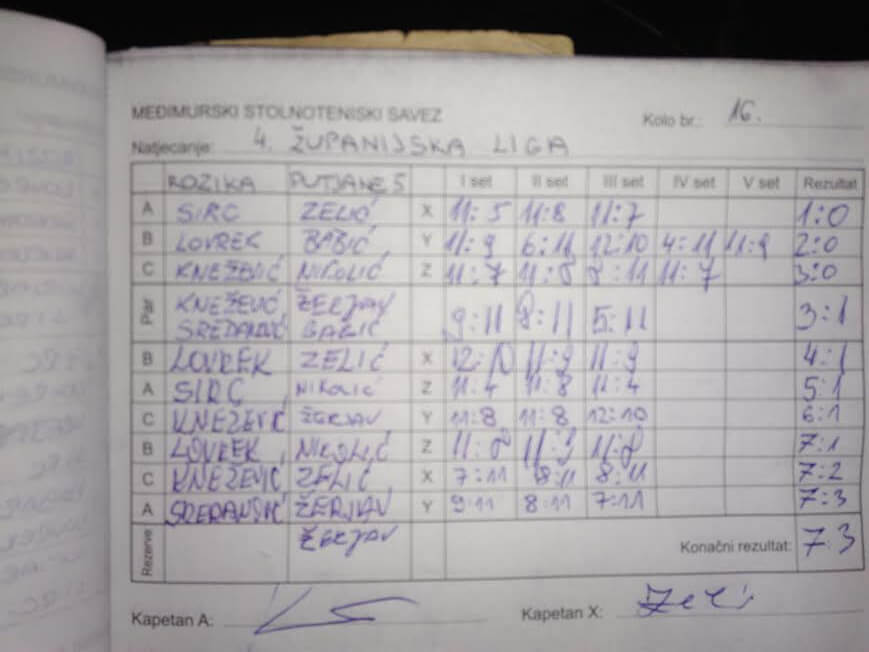 MEĐIMURSKI STOLNOTENISKI SAVEZ
Kolo br.: 16.
Natjecanje: 4. ŽUPANIJSKA LIGA
ROZIKA PUTJANE 5 I set II set III set IV set V set Rezultat
A SIRC ZELIĆ X 11:5 11:8 11:7 1:0
B LOVREK BABIĆ Y 11:9 6:11 12:10 4:11 11:9 2:0
C KNEŽEVIĆ NIKOLIĆ Z 11:7 11:8 8:11 11:7 3:0
Par KNEŽEVIĆ ŽERJAV 9:11 8:11 5:11 3:1
SREDANOVIĆ BABIĆ
B LOVREK ZELIĆ X 12:10 11:9 11:9 4:1
A SIRC NIKOLIĆ Z 11:4 11:8 11:4 5:1
C KNEŽEVIĆ ŽERJAV Y 11:8 11:8 12:10 6:1
B LOVREK NIKOLIĆ Z 11:8 11:9 11:8 7:1
C KNEŽEVIĆ ZELIĆ X 7:11 8:11 8:11 7:2
A ŽERJAV Y 9:11 8:11 7:11 7:3
Rezerve ŽERJAV Konačni rezultat: 7:3
Kapetan A: Kapetan X: